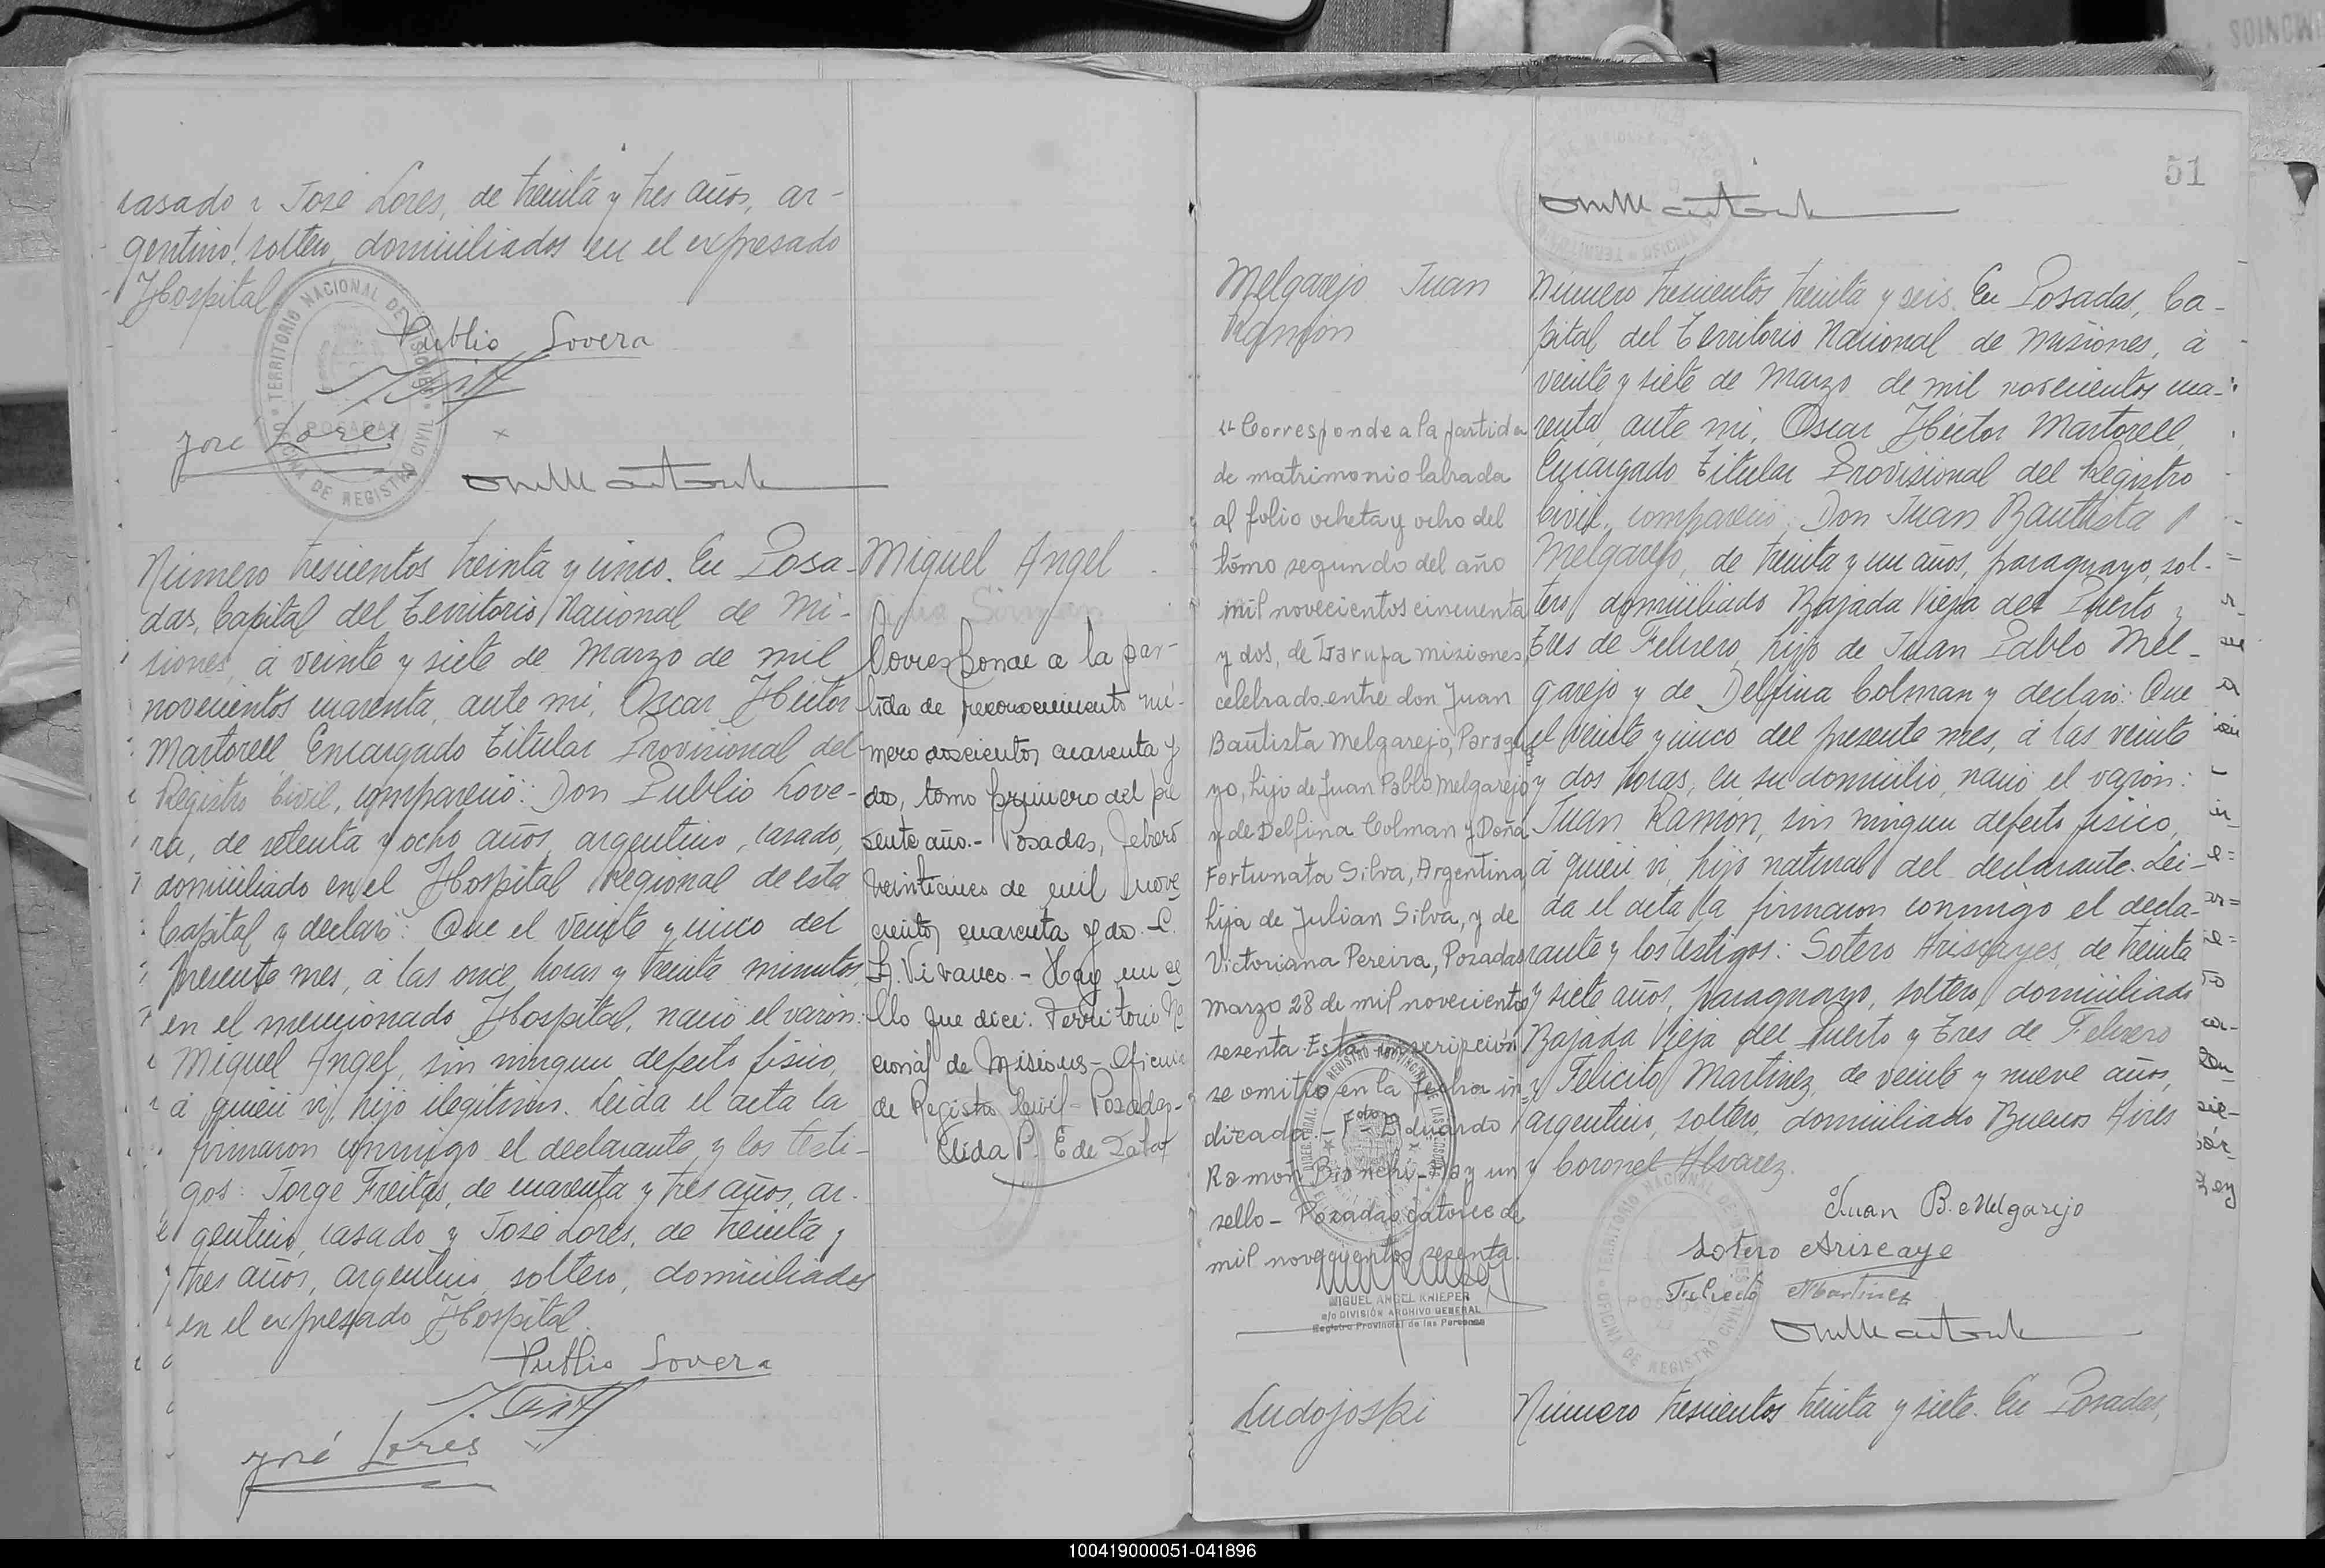 casado y José Lores, de treinta y tres años, ar-
gentino, soltero, domiciliados en el expresado
Hospital
Publio Lovera
José Lores
TERRITORIO NACIONAL DE MISIONES
OFICINA DE REGISTRO CIVIL
POSADAS
Número trescientos treinta y cinco. En Posa-
das, Capital del Territorio Nacional de Mi-
siones, á veinte y siete de Marzo de mil
novecientos cuarenta, ante mi, Oscar Héctor
Martorell, Encargado Titular Provisional del
Registro Civil, compareció: Don Publio Love-
ra, de setenta y ocho años, argentino, casado,
domiciliado en el Hospital Regional de esta
Capital y declaró: Que el veinte y cinco del
presente mes, á las once horas y treinta minutos,
en el mencionado Hospital, nació el varón:
Miguel Angel, sin ningun defecto fisico,
á quien vi, hijo ilegítimo. Leida el acta la
firmaron conmigo el declarante y los testi-
gos: Jorge Freitas, de cuarenta y tres años, ar-
gentino, casado y José Lores, de treinta y
tres años, argentino, soltero, domiciliados
en el expresado Hospital.
Publio Lovera
José Lores
Miguel Angel
Corresponde a la par-
tida de reconocimiento nú-
mero doscientos cuarenta y
dos, tomo primero del pre
sente año.- Posadas, febrero
veinticinco de mil nove
cientos cuarenta y dos.- C.
A. Vivanco.- Hay un se
llo que dice: Territorio Na
cional de Misiones - Oficina
de Registro Civil - Posadas.-
Elida P. E de
51
Melgarejo Juan
Ramón
"Corresponde a la partida
de matrimonio labrada
al folio ocheta y ocho del
tómo segundo del año
mil novecientos cincuenta
y dos, de Garupa misiones,
celebrado entre don Juan
Bautista Melgarejo, Paragua
yo, hijo de Juan Pablo Melgarejo
y de Delfina Colman y Doña
Fortunata Silva, Argentina,
hija de Julian Silva, y de
Victoriana Pereira, Posadas
marzo 28 de mil novecientos
sesenta. Esta inscripción
se omitio en la fecha in-
dicada - Fdo - Eduardo
Ramón Bianchi - Hay un
sello - Posadas catorce de
mil novecientos sesenta.
MIGUEL ANGEL KNIEPER
a/c DIVISIÓN ARCHIVO GENERAL
Registro Provincial de las Personas
Ludojoski
Número trescientos treinta y seis. En Posadas, Ca-
pital del Territorio Nacional de Misiones, á
veinte y siete de Marzo de mil novecientos cua-
renta, ante mi, Oscar Héctor Martorell,
Encargado Titular Provisional del Registro
Civil, compareció: Don Juan Bautista
Melgarejo, de treinta y un años, paraguayo, sol-
tero, domiciliado Bajada Vieja del Puerto y
Tres de Febrero, hijo de Juan Pablo Mel-
garejo y de Delfina Colman y declaró: Que
el veinte y cinco del presente mes, á las veinte
y dos horas, en su domicilio, nació el varón:
Juan Ramón, sin ningun defecto fisico,
á quien vi, hijo natural del declarante. Lei-
da el acta la firmaron conmigo el decla-
rante y los testigos: Sotero Ariscayes, de treinta
y siete años, paraguayo, soltero, domiciliado
Bajada Vieja del Puerto y Tres de Febrero
y Felicito Martinez, de veinte y nueve años,
argentino, soltero, domiciliado Buenos Aires
y Coronel Alvarez.
Juan B. Melgarejo
Sotero Ariscaye
Felicito Martinez
TERRITORIO NACIONAL DE MISIONES
OFICINA DE REGISTRO CIVIL
POSADAS
Número trescientos treinta y siete. En Posadas,
100419000051-041896